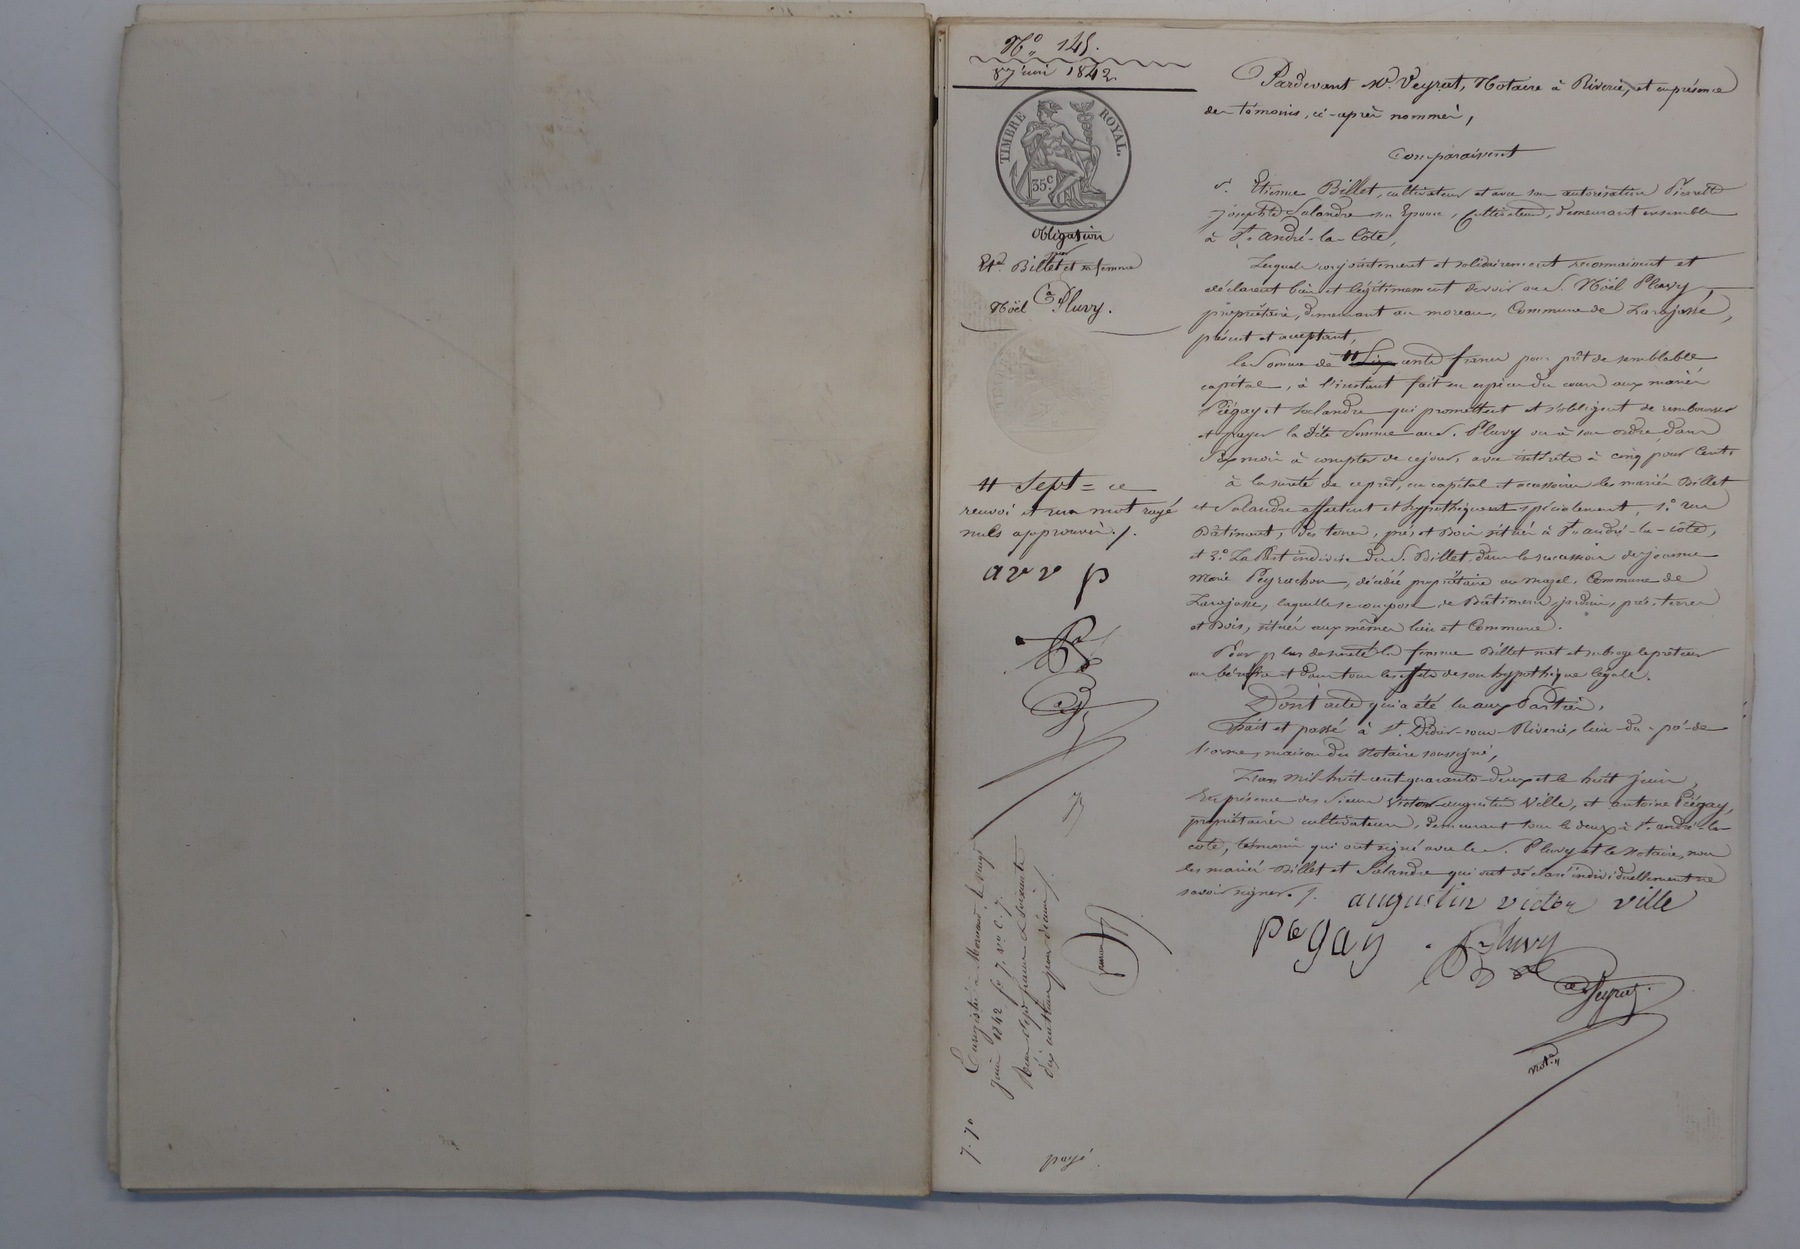 N° 145.
8 juin 1842
TIMBRE ROYAL.
35c
Obligation
Et.ne Billet et sa femme
à
Noël Pluvy.
# Sept = ce
renvoi et un mot rayé
nuls approuvés ./.
avv p
Enregistré à Mornant, le vingt
juin 1842 f° 7. v° c. 7.
Reçu sept francs soixante
dix centimes pour décime /.
7.70
payé
Pardevant Me. Veyret, Notaire à Riverie, et en présence
des témoins, ci-après nommés,
Comparaissent
S. Etienne Billet, cultivateur et avec son autorisation Pierrette
Josephte Solandre son Epouse, Cultivateurs, demeurant ensemble
à St. André-la-Côte,
Lesquels conjointement et solidairement reconnaissent et
déclarent bien et légitimement devoir au S. Noël Pluvy,
propriétaire, demeurant au moreau, Commune de Larajasse,
présent et acceptant,
la Somme de # Six cents francs pour prêt de semblable
capital, à l'instant fait en espèces du cours aux mariés
Piégay et Solandre qui promettent et s'obligent de rembourser
et payer la dite Somme au S. Pluvy ou à son ordre, dans
Six mois à compter de ce jour, avec intérêts à cinq pour Cent.
à la sureté de ce prêt, en capital et accessoires les mariés Billet
et Solandre affectent et hypothèquent spécialement, 1° un
Bâtiment, des terres, prés et Bois situés à St. andré-la-côte,
et 2° La Part indivise du S. Billet, dans la succession de jeanne
Marie Peyrachon, décédée propriétaire au mazel, Commune de
Larajasse, laquelle se compose de Bâtiments, jardins, prés, terres
et Bois, situés aux mêmes lieu et Commune.
Pour plus de sureté la femme Billet met et subroge le prêteur
au bénéfice et dans tous les effets de son hypothèque légale.
Dont acte qui a été lu aux Parties,
Fait et passé à St. Didier-sous-Riverie, lieu-du-pé-de
l'orme, maison du Notaire soussigné,
L'an mil-huit-cent-quarante-deux et le huit juin,
En présence des Sieurs Victor augustin Ville, et antoine Piégay,
propriétaires cultivateurs, demeurant tous les deux à St. andré-la-
côte, témoins qui ont signé avec le S. Pluvy et le Notaire, non
les mariés Billet et Solandre qui ont déclaré individuellement ne
savoir signer. /.
augustin victor ville
pegay
Pluvy
Veyret
not.re